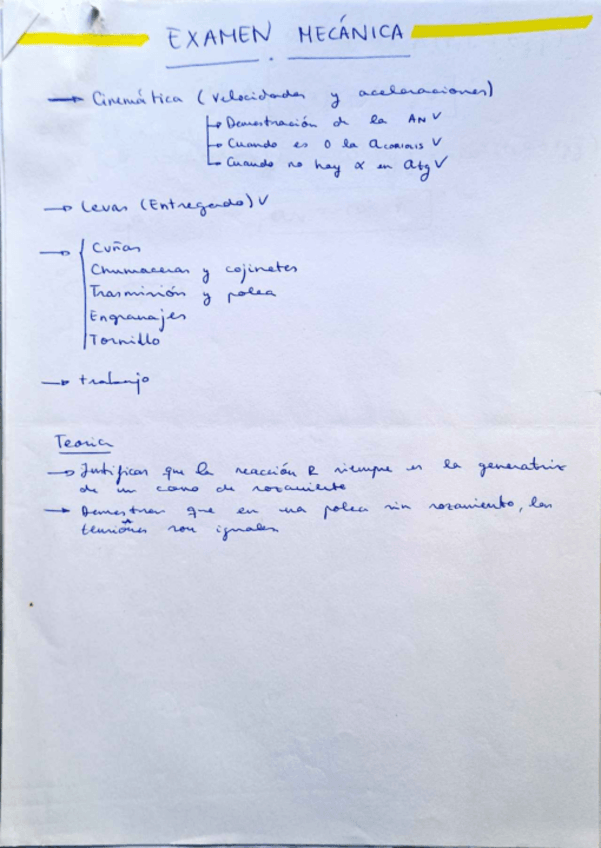 EXAMEN MECÁNICA
→ Cinemática (velocidades y aceleraciones)
→ Demostración de la AN ✓
→ Cuando es 0 la acoriolis ✓
→ Cuando no hay α en atg ✓
→ Levas (Entregado) ✓
→ Cuñas
Chumaceras y cojinetes
Trasmisión y polea
Engranajes
Tornillo
→ trabajo
Teoría
→ Justificar que la reacción R siempre es la generatriz
de un cono de rozamiento
→ Demostrar que en una polea sin rozamiento, las
tensiones son iguales